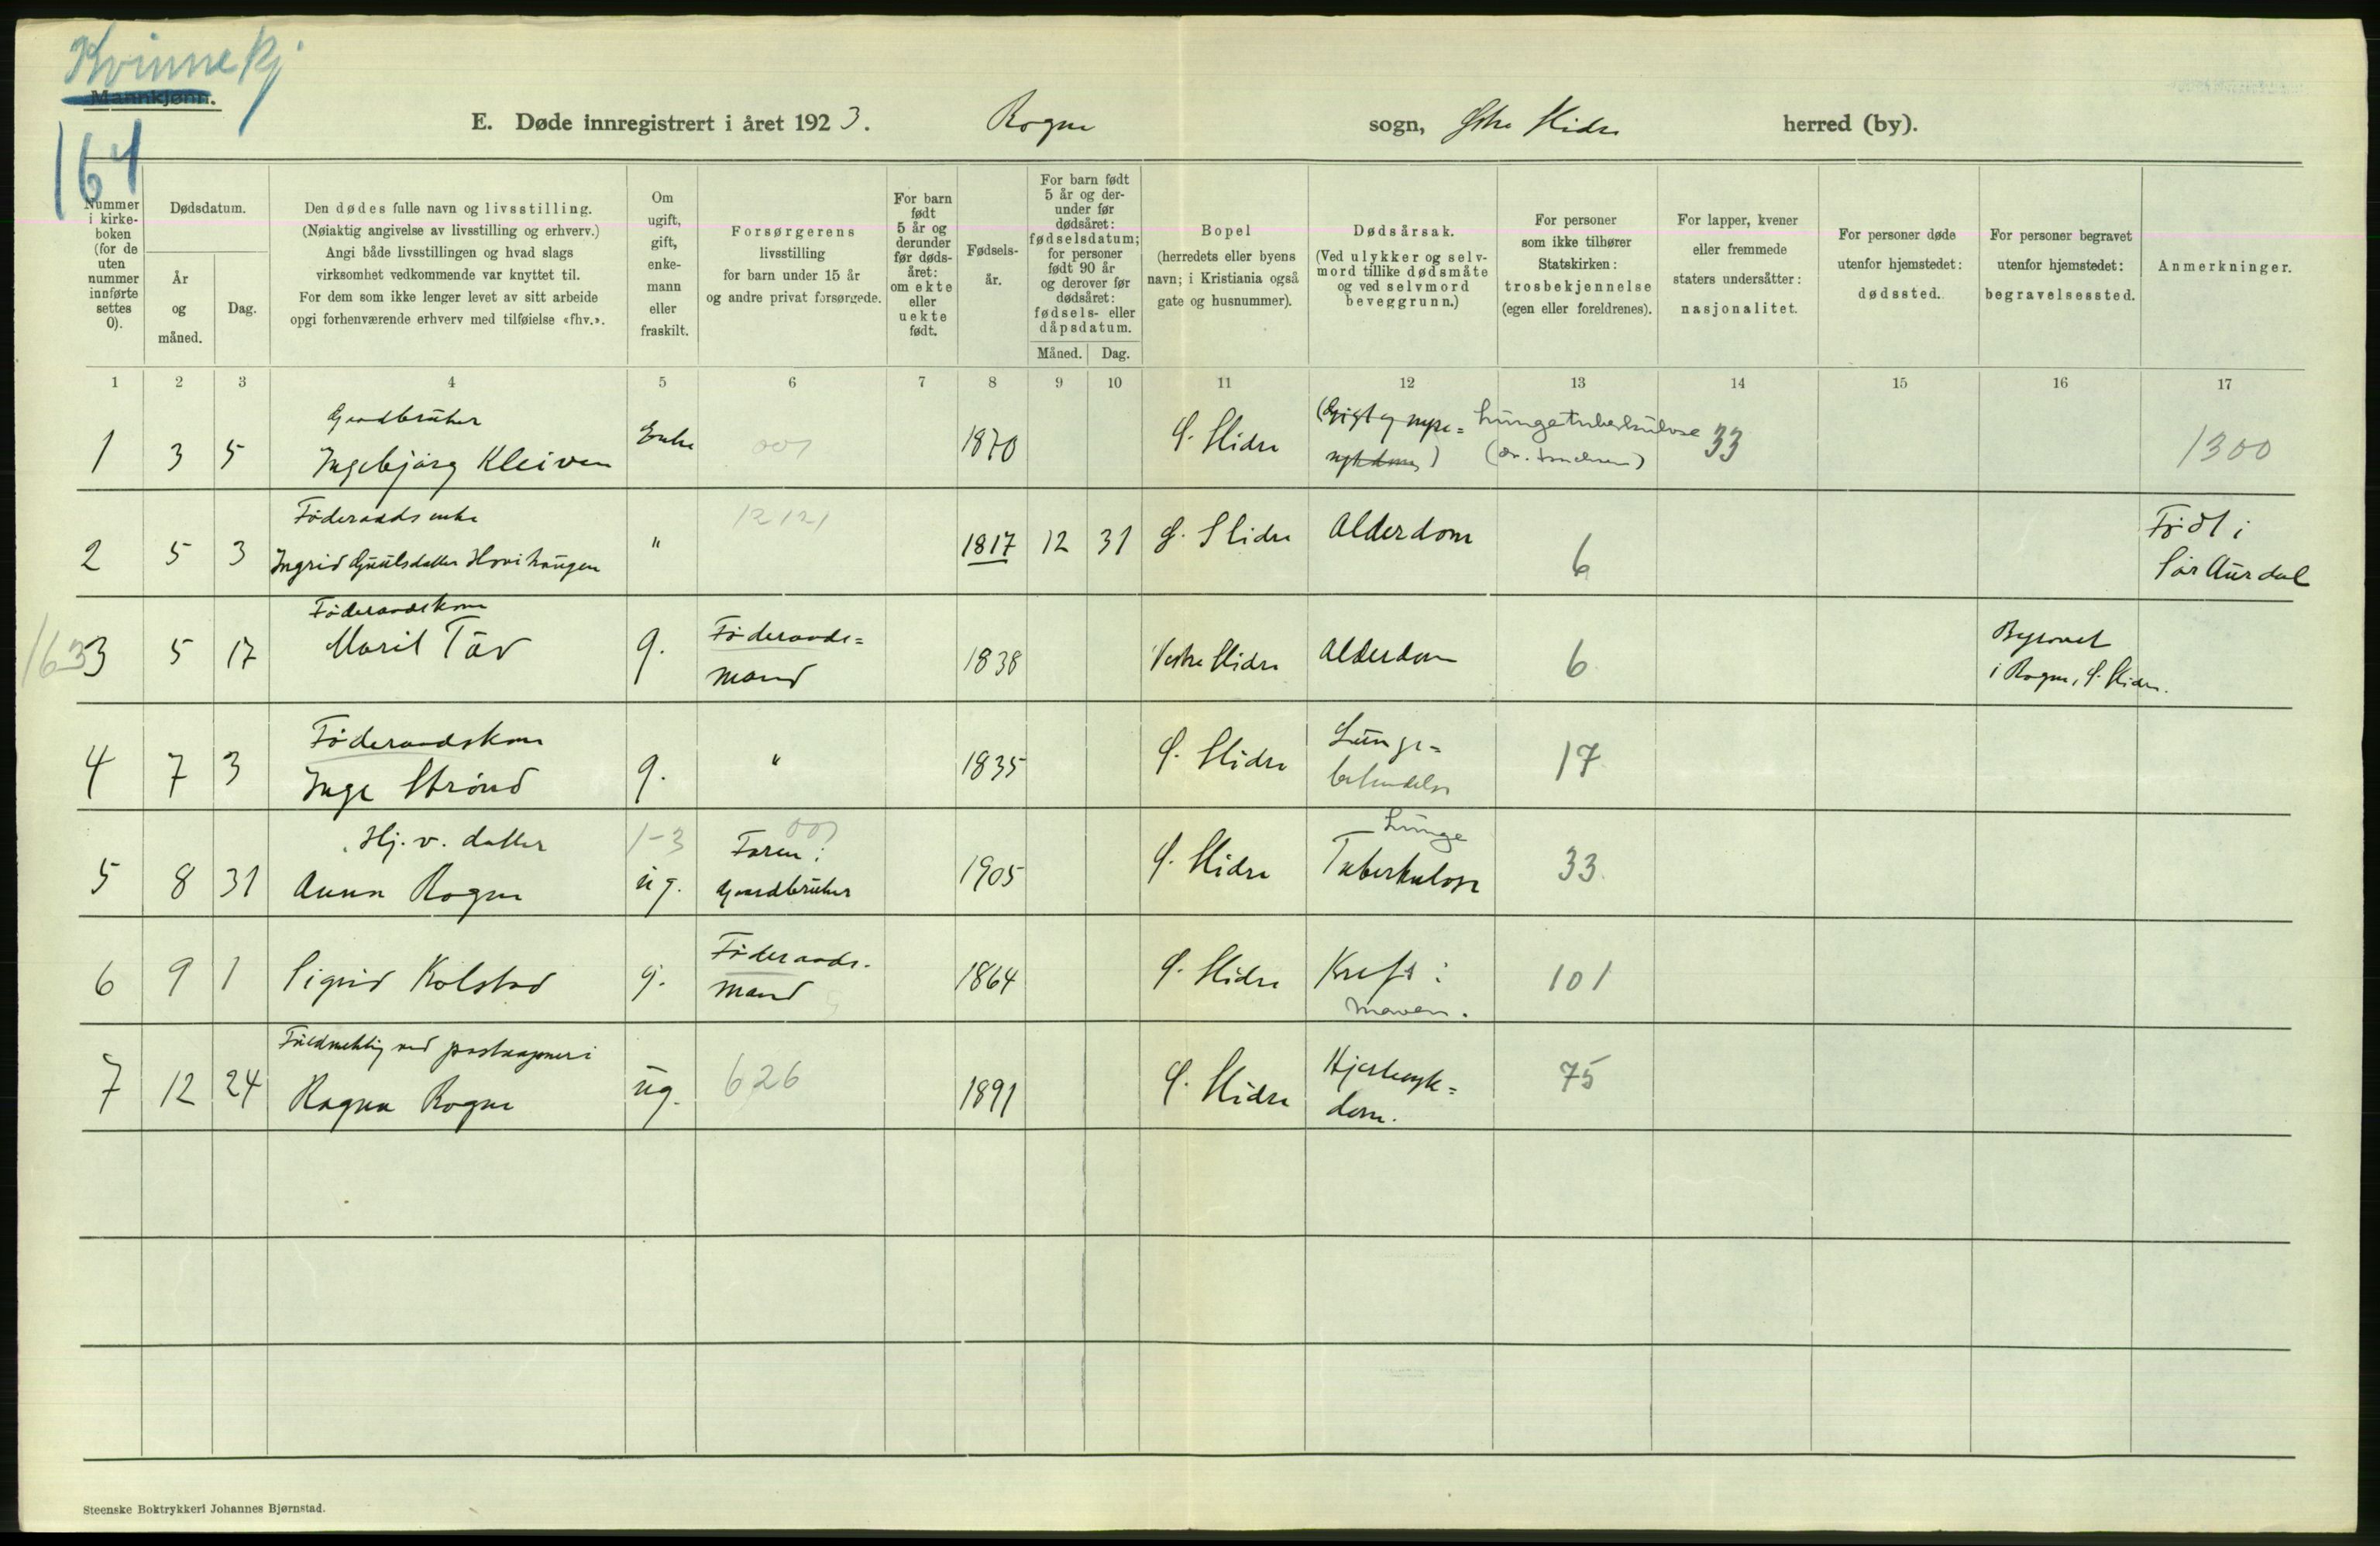 Kvinnekj
Mannkjønn.
164
E. Døde innregistrert i året 1923. Rogne sogn, Østre Slidre herred (by).
Nummer i kirkeboken (for de uten nummer innførte settes 0).
Dødsdatum.
År og måned.
Dag.
Den dødes fulle navn og livsstilling.
(Nøiaktig angivelse av livsstilling og erhverv.)
Angi både livsstillingen og hvad slags
virksomhet vedkommende var knyttet til.
For dem som ikke lenger levet av sitt arbeide
opgi forhenværende erhverv med tilføielse «fhv.».
Om ugift, gift, enkemann eller fraskilt.
Forsørgerens
livsstilling
for barn under 15 år
og andre privat forsørgede.
For barn født 5 år og derunder før dødsåret: om ekte eller uekte født.
Fødselsår.
For barn født 5 år og derunder før dødsåret: fødselsdatum; for personer født 90 år og derover før dødsåret: fødsels- eller dåpsdatum.
Måned. Dag.
Bopel
(herredets eller byens
navn; i Kristiania også
gate og husnummer).
Dødsårsak.
(Ved ulykker og selvmord tillike dødsmåte og ved selvmord beveggrunn.)
For personer
som ikke tilhører
Statskirken:
trosbekjennelse
(egen eller foreldrenes).
For lapper, kvener
eller fremmede
staters undersåtter:
nasjonalitet.
For personer døde
utenfor hjemstedet:
dødssted.
For personer begravet
utenfor hjemstedet:
begravelsessted.
Anmerkninger.
1 2 3 4 5 6 7 8 9 10 11 12 13 14 15 16 17
Gaardbruker
1 3 5 Ingebjørg Kleiven Enke 001 1870 Ø. Slidre (Gigt og nyre= sykdom) Lungetuberkulose 33 1300
Føderaadsenke
2 5 3 Ingrid Gjuulsdatter Hovihaugen " 12121 1817 12 31 Ø. Slidre Alderdom 6 Født i
Sør Aurdal
Føderaadskone
163 3 5 17 Marit Tåv g. Føderaads=
mand 1838 Vestre Slidre Alderdom 6 Begravet
i Rogne, Ø. Slidre.
Føderaadskone
4 7 3 Inga Strönd g. " 1835 Ø. Slidre Lunge=
betendelse 17
Hj. v. datter 1-3 001
5 8 31 Anna Rogne ug. Faren: Gaardbruker 1905 Ø. Slidre Lunge
Tuberkulose 33
6 9 1 Sigrid Kolstad g. Føderaads-
mand 1864 Ø. Slidre Kreft i
maven. 101
Fuldmektig ved postaapneri
7 12 24 Ragna Rogne ug. 626 1891 Ø. Slidre Hjertesyk=
dom. 75
Steenske Boktrykkeri Johannes Bjørnstad.